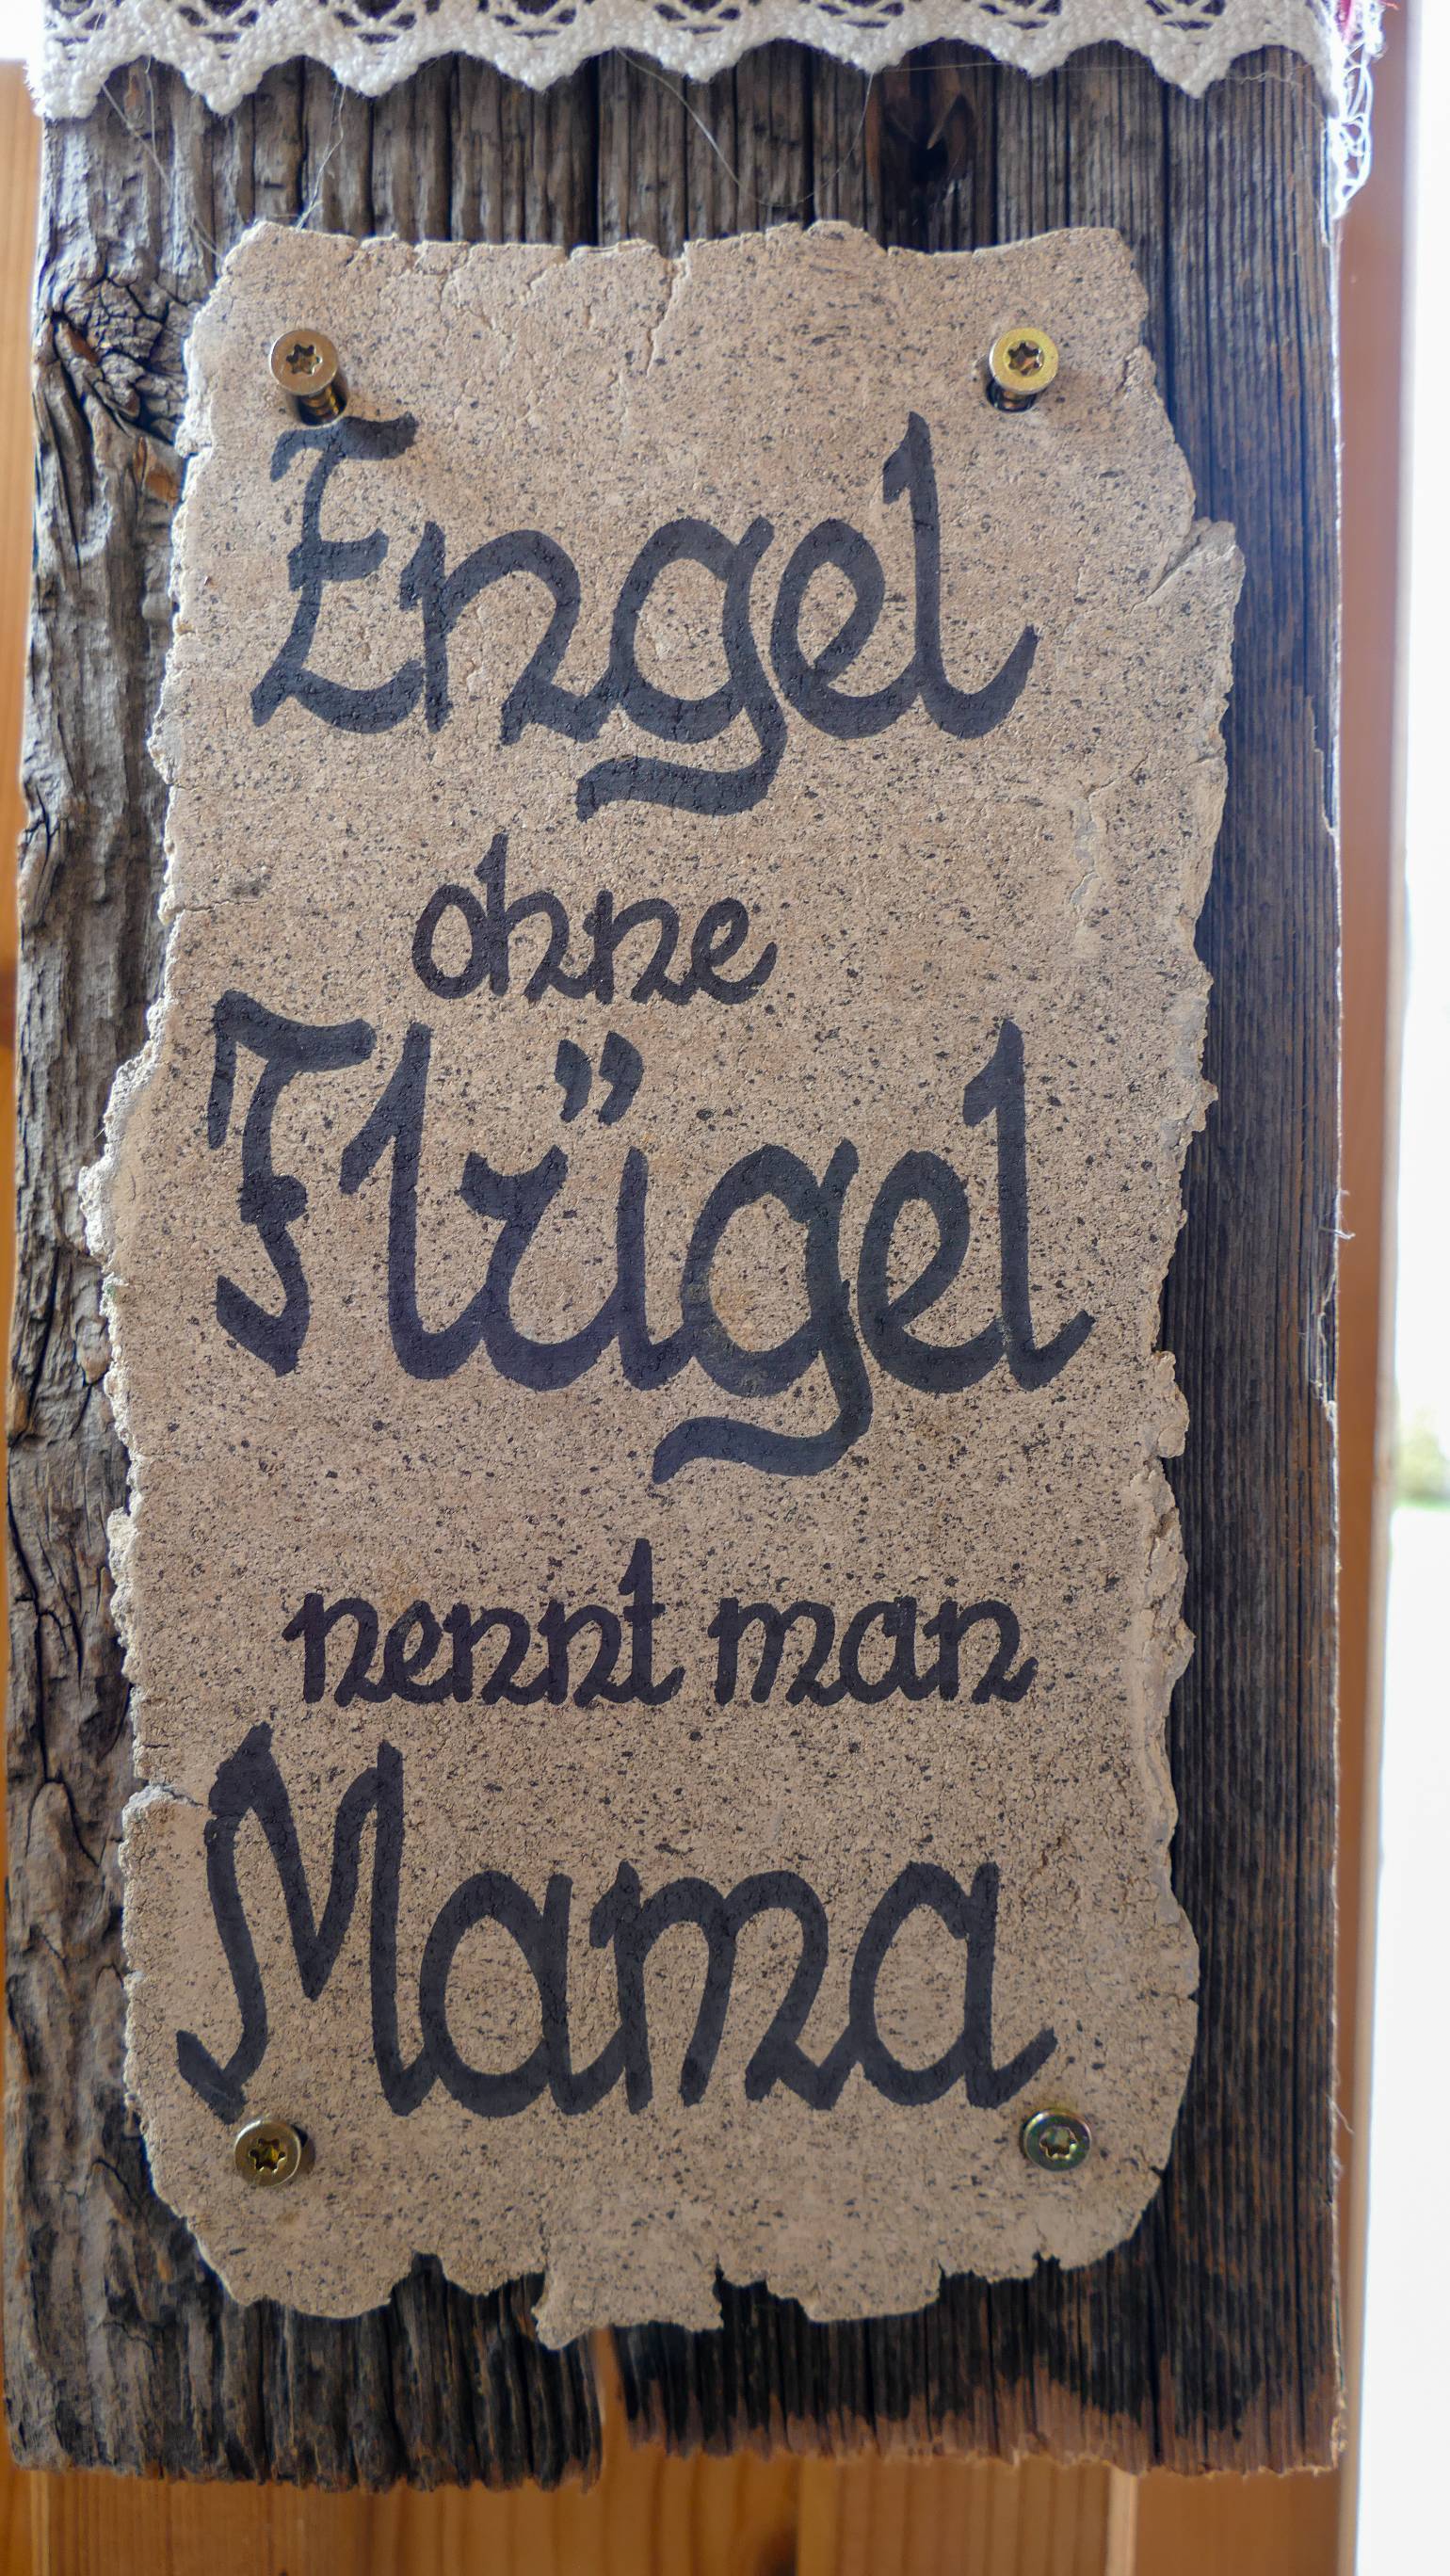 Engel
ohne
Flügel
nennt man
Mama